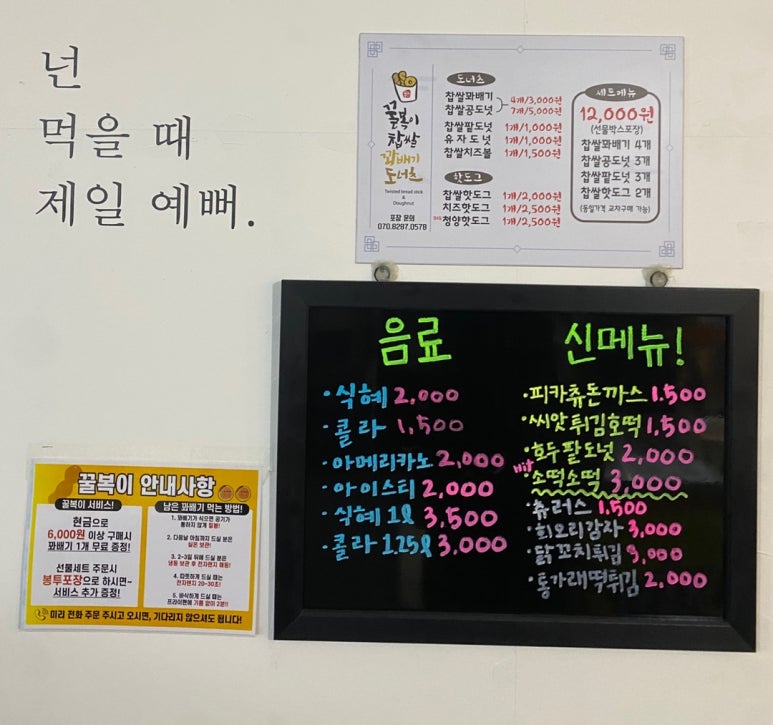 넌
먹을 때
제일 예뻐.
꿀복이
찹쌀
꽈배기
도너츠
Twisted bread stick
&
Doughnut
포장 문의
070.8287.0578
도너츠
찹쌀꽈배기
찹쌀공도넛
4개/3,000원
7개/5,000원
찹쌀팥도넛 1개/1,000원
유자도넛 1개/1,000원
찹쌀치즈볼 1개/1,500원
핫도그
찹쌀핫도그 1개/2,000원
치즈핫도그 1개/2,500원
청양핫도그 1개/2,500원
세트메뉴
12,000원
(선물박스포장)
찹쌀꽈배기 4개
찹쌀공도넛 3개
찹쌀팥도넛 3개
찹쌀핫도그 2개
(동일가격 교차구매 가능)
음료
·식혜 2,000
·콜라 1,500
·아메리카노 2,000
·아이스티 2,000
·식혜 1ℓ 3,500
·콜라 1.25ℓ 3,000
신메뉴!
·피카츄돈까스 1.500
·씨앗튀김호떡 1,500
·호두팥도넛 2,000
Hit
·소떡소떡 3,000
·츄러스 1.500
·회오리감자 3,000
·닭꼬치튀김 3,000
·통가래떡튀김 2,000
꿀복이 안내사항
꿀복이 서비스!
현금으로
6,000원 이상 구매시
꽈배기 1개 무료 증정!
선물세트 주문시
봉투포장으로 하시면~
서비스 추가 증정!
남은 꽈배기 먹는 방법!
1. 꽈배기가 식으면 공기가
통하지 않게 밀봉!
2. 다음날 아침까지 드실 분은
실온 보관!
3. 2~3일 뒤에 드실 분은
냉동 보관 후 전자렌지 해동!
4. 따뜻하게 드실 때는
전자렌지 20~30초!
5. 바삭하게 드실 때는
프라이팬에 기름 없이 2분!!
미리 전화 주문 주시고 오시면, 기다리지 않으셔도 됩니다!